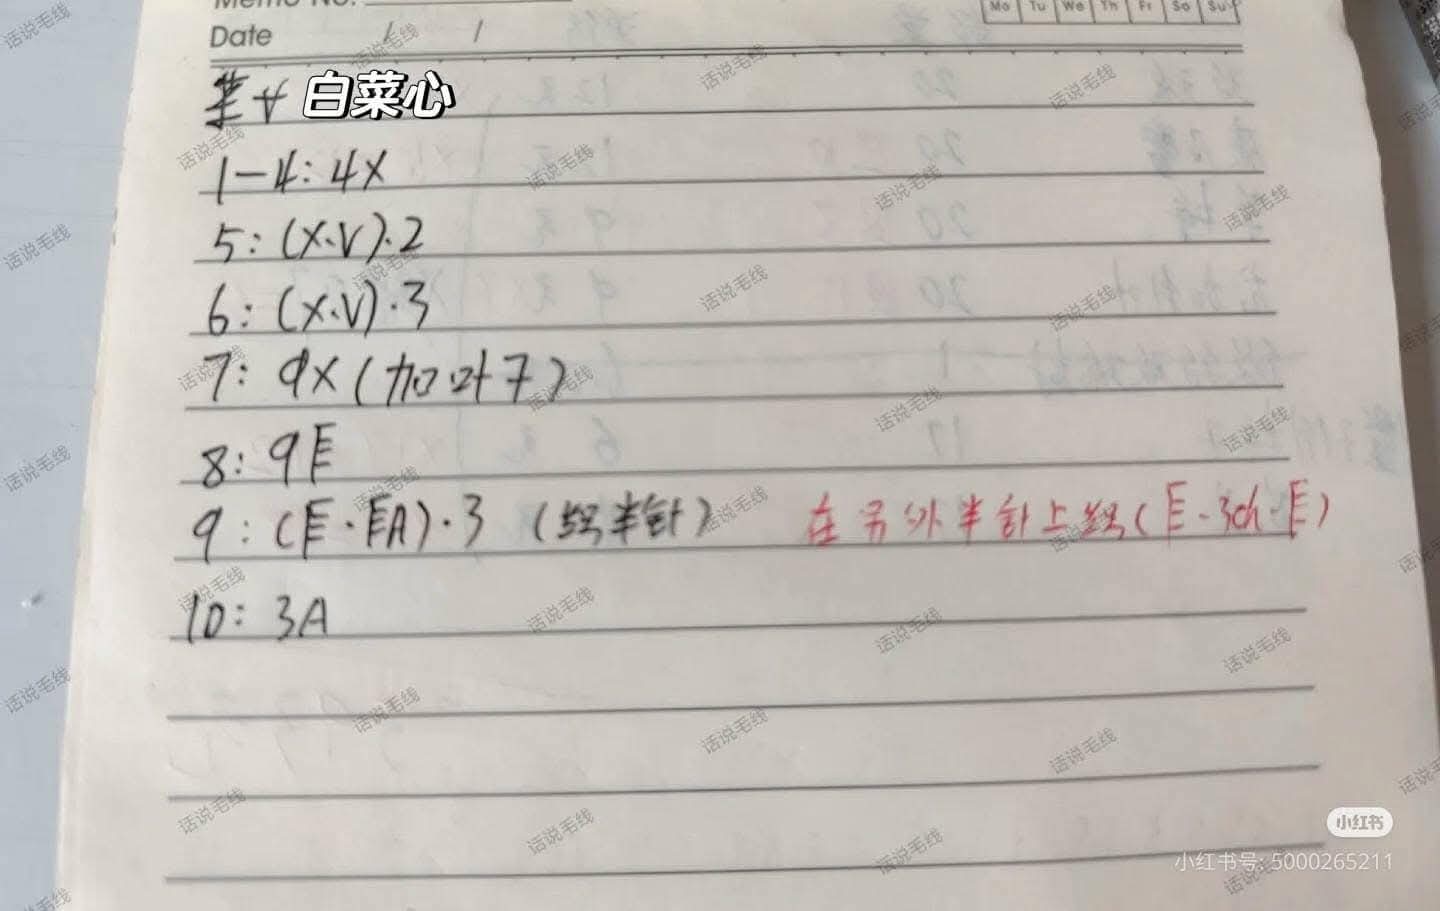 Memo No.
Mo Tu We Th Fr Sa Su
Date / /
白菜心
1-4: 4X
5: (X·V)·2
6: (X·V)·3
7: 9X (加叶子)
8: 9E
9: (E·EA)·3 (织半针) 在另外半针上织(E·3ch·E)
10: 3A
话说毛线
小红书
小红书号: 5000265211